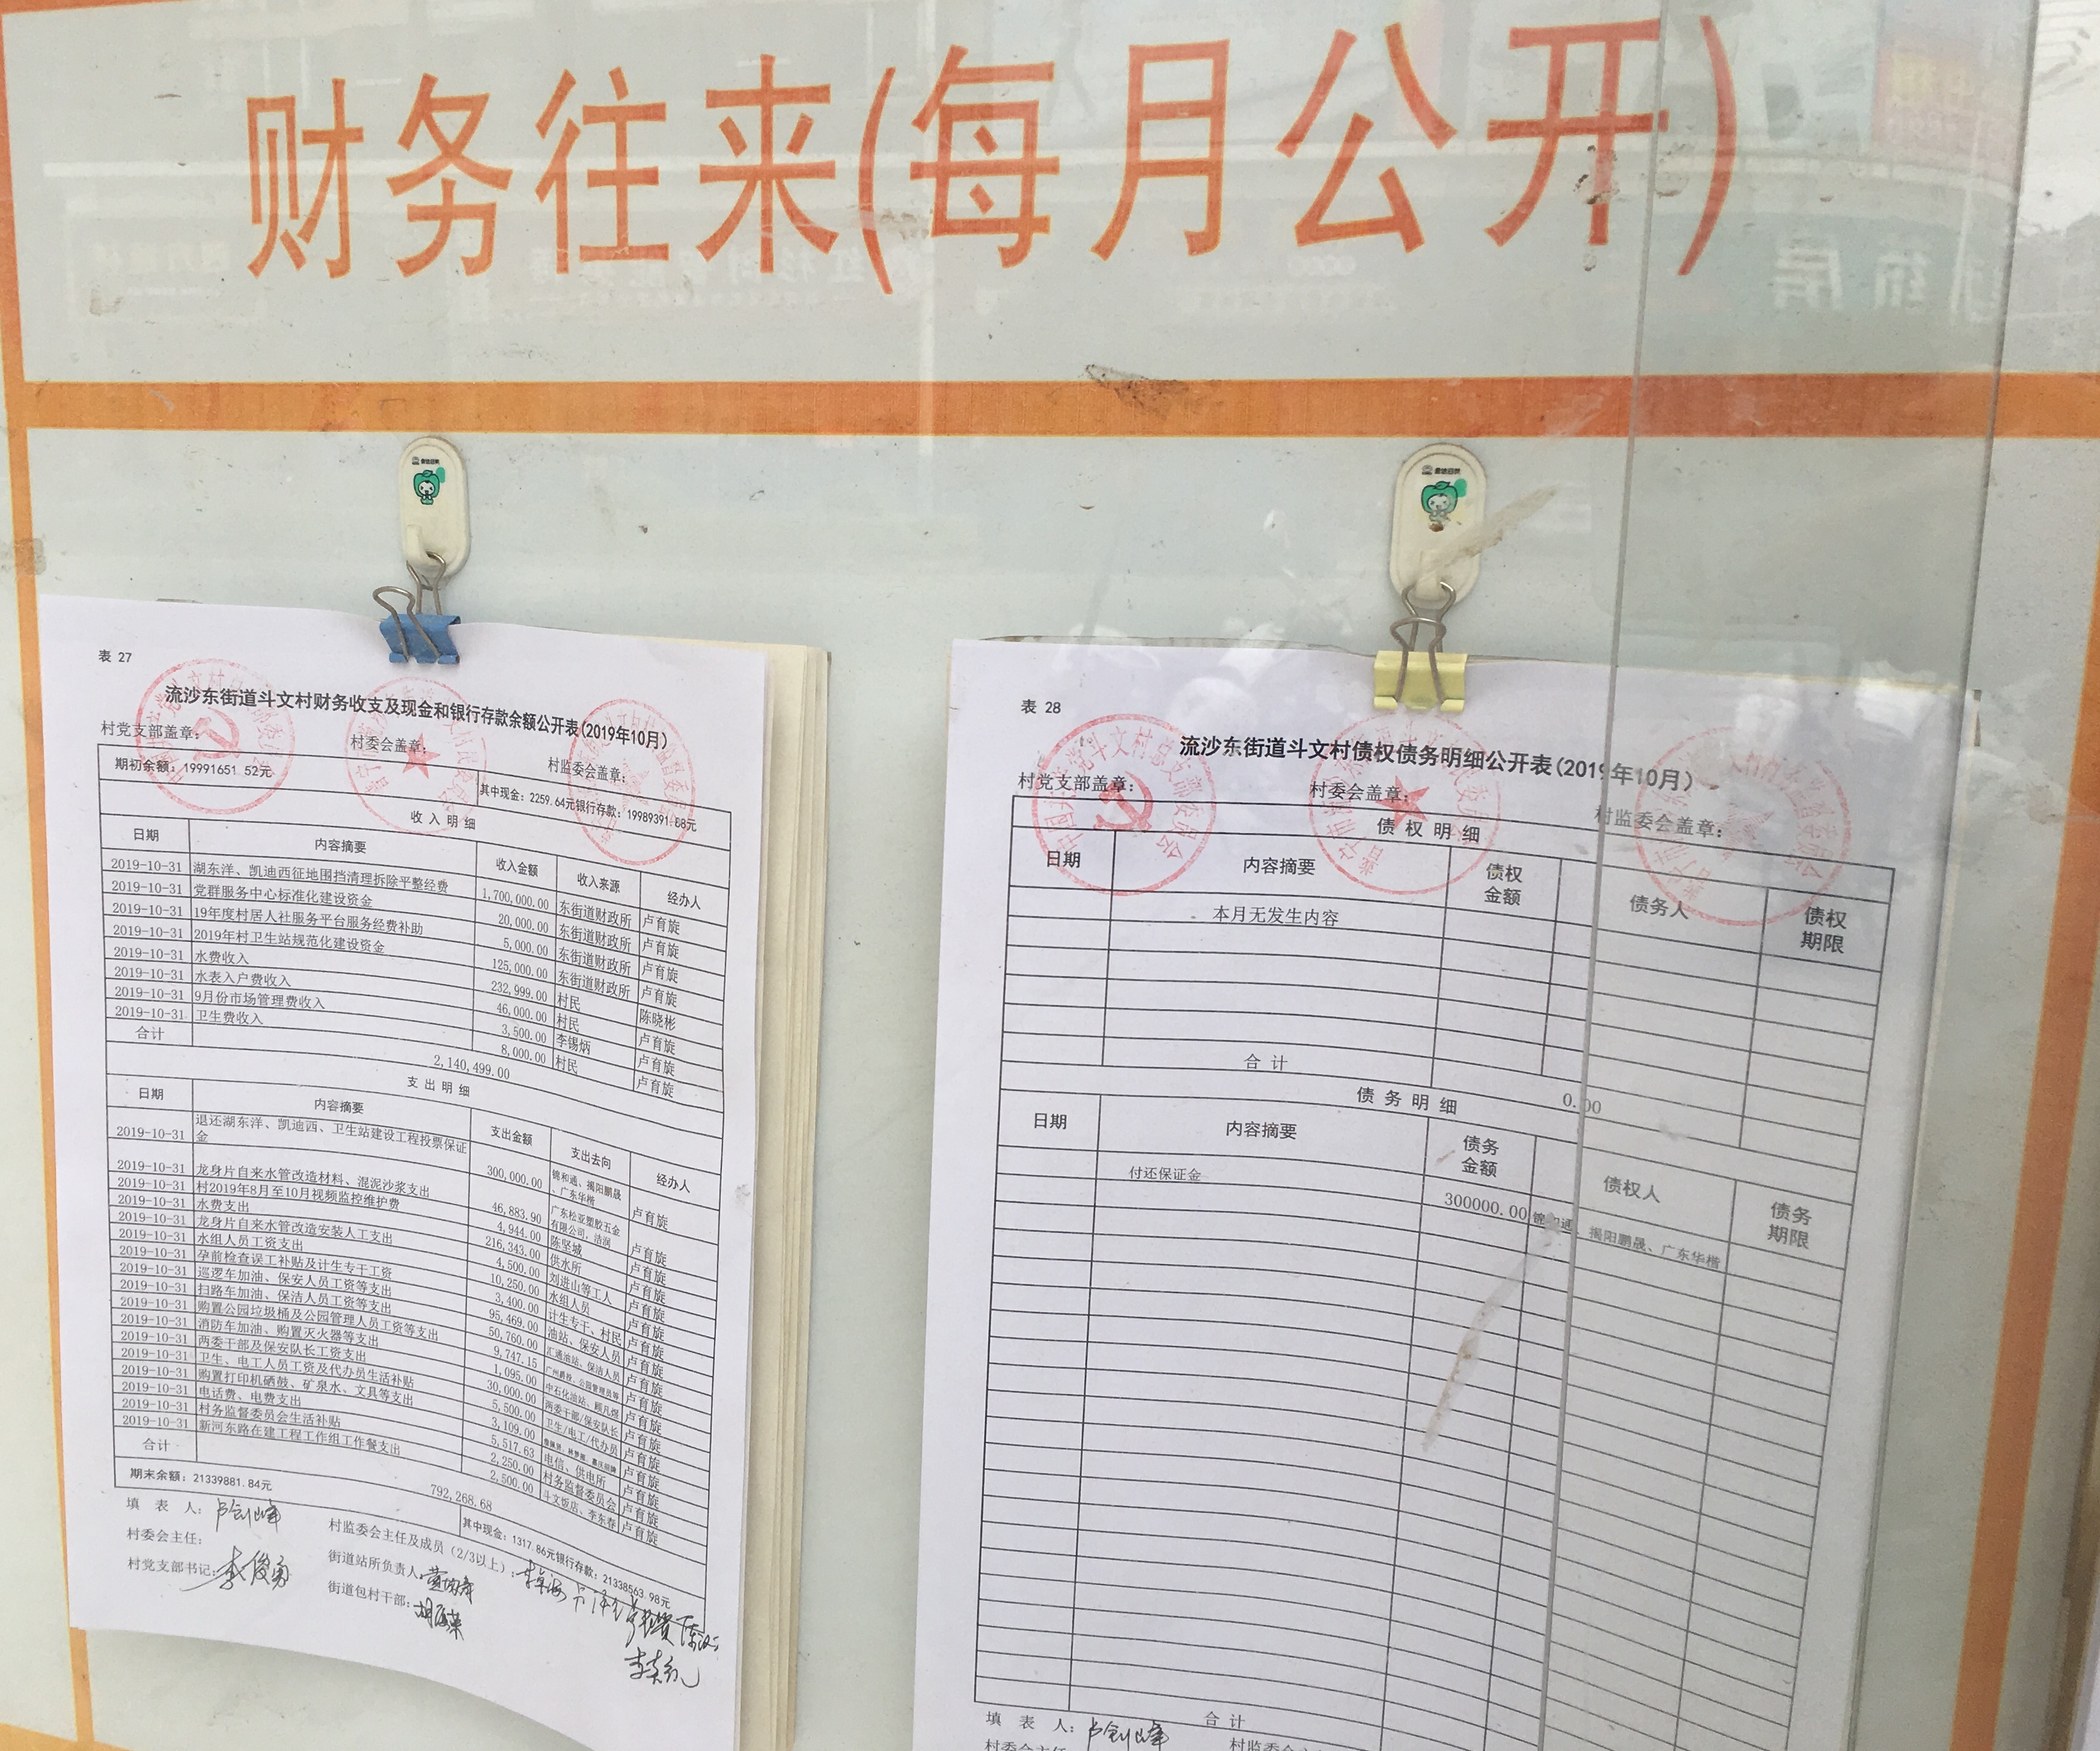 财务往来(每月公开)
表 27
流沙东街道斗文村财务收支及现金和银行存款余额公开表(2019年10月)
村党支部盖章: 村委会盖章: 村监委会盖章:
期初余额: 19991651.52元 其中现金: 2259.64元银行存款: 19989391.88元
收入明细
日期 内容摘要 收入金额 收入来源 经办人
2019-10-31 湖东洋、凯迪西征地围挡清理拆除平整经费 1,700,000.00 东街道财政所 卢育旋
2019-10-31 党群服务中心标准化建设资金 20,000.00 东街道财政所 卢育旋
2019-10-31 19年度村居人社服务平台服务经费补助 5,000.00 东街道财政所 卢育旋
2019-10-31 2019年村卫生站规范化建设资金 125,000.00 东街道财政所 卢育旋
2019-10-31 水费收入 232,999.00 村民 陈晓彬
2019-10-31 水表入户费收入 46,000.00 村民 卢育旋
2019-10-31 9月份市场管理费收入 3,500.00 李锡炳 卢育旋
2019-10-31 卫生费收入 8,000.00 村民 卢育旋
合计 2,140,499.00
支出明细
日期 内容摘要 支出金额 支出去向 经办人
2019-10-31 退还湖东洋、凯迪西、卫生站建设工程投票保证金 300,000.00 锦和通、揭阳鹏晟、广东华楷 卢育旋
2019-10-31 龙身片自来水管改造材料、混泥沙浆支出 46,883.90 广东松亚塑胶五金有限公司，洁润 卢育旋
2019-10-31 村2019年8月至10月视频监控维护费 4,944.00 陈坚城 卢育旋
2019-10-31 水费支出 216,343.00 供水所 卢育旋
2019-10-31 龙身片自来水管改造安装人工支出 4,500.00 刘进山等工人 卢育旋
2019-10-31 水组人员工资支出 10,250.00 水组人员 卢育旋
2019-10-31 孕前检查误工补贴及计生专干工资 3,400.00 计生专干、村民 卢育旋
2019-10-31 巡逻车加油、保安人员工资等支出 95,469.00 油站、保安人员 卢育旋
2019-10-31 扫路车加油、保洁人员工资等支出 50,760.00 汇通油站、保洁人员 卢育旋
2019-10-31 购置公园垃圾桶及公园管理人员工资等支出 9,747.15 公园管理员等 卢育旋
2019-10-31 消防车加油、购置灭火器等支出 1,095.00 中石化油站、顾凡煜 卢育旋
2019-10-31 两委干部及保安队长工资支出 30,000.00 两委干部/保安队长 卢育旋
2019-10-31 卫生、电工人员工资及代办员生活补贴 5,500.00 卫生/电工/代办员 卢育旋
2019-10-31 购置打印机硒鼓、矿泉水、文具等支出 3,109.00 卢育旋
2019-10-31 电话费、电费支出 5,517.63 电信、供电所 卢育旋
2019-10-31 村务监督委员会生活补贴 2,250.00 村务监督委员会 卢育旋
2019-10-31 新河东路在建工程工作组工作餐支出 2,500.00 斗文饭店、李东春 卢育旋
合计 792,268.68
期末余额: 21339881.84元 其中现金: 1317.86元银行存款: 21338563.98元
填 表 人: 卢剑峰 村监委会主任及成员 (2/3以上):
村委会主任: 街道站所负责人:
村党支部书记: 李俊勇 街道包村干部:
表 28
流沙东街道斗文村债权债务明细公开表(2019年10月)
村党支部盖章: 村委会盖章: 村监委会盖章:
债权明细
日期 内容摘要 债权金额 债务人 债权期限
本月无发生内容
合计 0.00
债务明细
日期 内容摘要 债务金额 债权人 债务期限
付还保证金 300000.00 锦和通、揭阳鹏晟、广东华楷
合计
填 表 人: 卢剑峰
村委会主任 村监委会